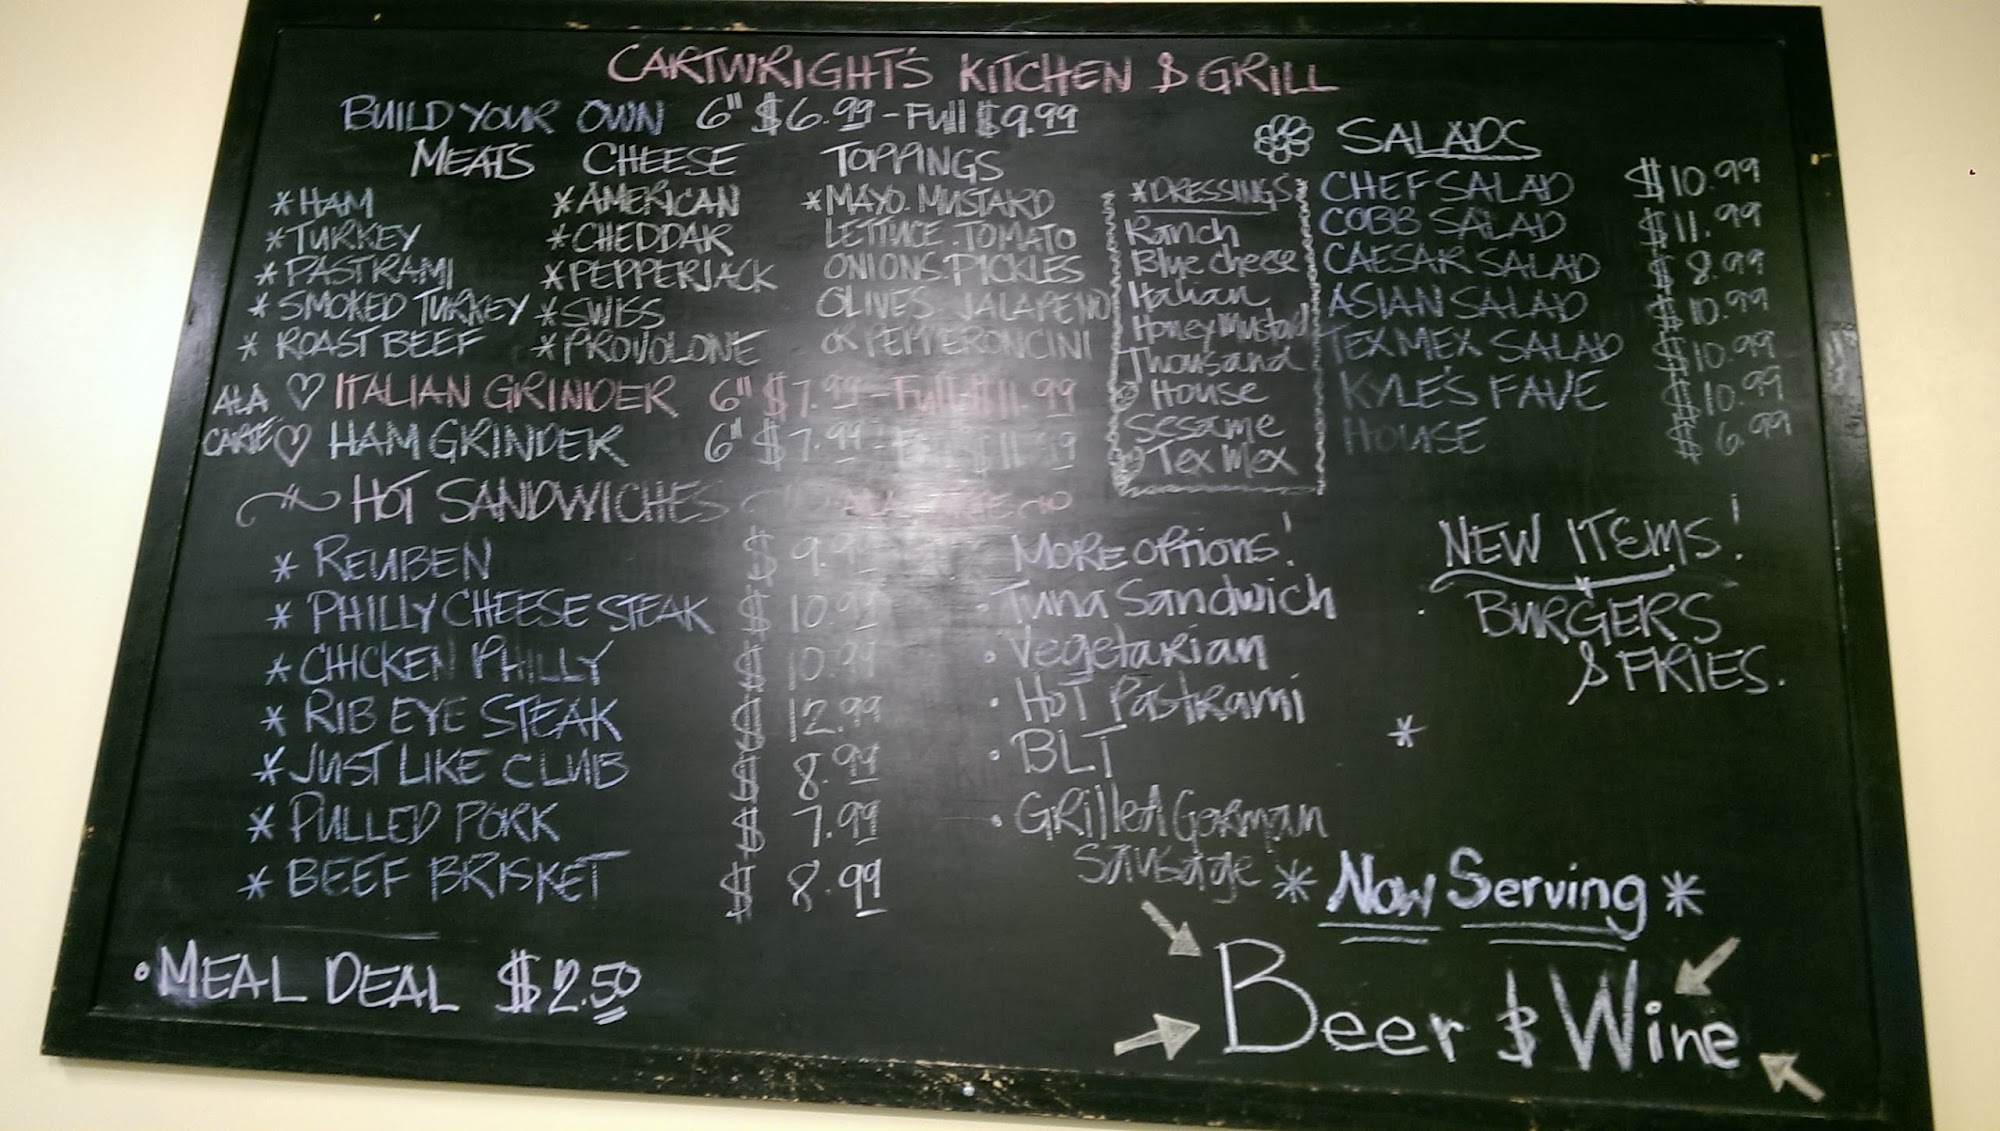 CARTWRIGHT'S KITCHEN & GRILL
BUILD YOUR OWN 6" $6.99 - Full $9.99
MEATS
*HAM
*TURKEY
*PASTRAMI
*SMOKED TURKEY
* ROAST BEEF
CHEESE
*AMERICAN
*CHEDDAR
*PEPPERJACK
*SWISS
*PROVOLONE
TOPPINGS
*MAYO. MUSTARD
LETTUCE. TOMATO
ONIONS. PICKLES
OLIVES. JALAPENO
OR PEPPERONCINI
ALA CARTE
♡ ITALIAN GRINDER 6" $7.99 - Full $11.99
♡ HAM GRINDER 6" $7.99 - $11.99
HOT SANDWICHES
* REUBEN $ 9.99
* PHILLY CHEESE STEAK $ 10.99
* CHICKEN PHILLY $ 10.99
* RIB EYE STEAK $ 12.99
* JUST LIKE CLUB $ 8.99
* PULLED PORK $ 7.99
* BEEF BRISKET $ 8.99
• MEAL DEAL $2.50
*DRESSINGS
Ranch
Blue cheese
Italian
Honey Mustard
Thousand
House
Sesame
Tex Mex
SALADS
CHEF SALAD $10.99
COBB SALAD $11.99
CAESAR SALAD $8.99
ASIAN SALAD $10.99
TEX MEX SALAD $10.99
KYLE'S FAVE $10.99
HOUSE $6.99
MORE OPTIONS!
• Tuna Sandwich
• Vegetarian
• Hot Pastrami
• BLT
• Grilled German
Sausage
NEW ITEMS!
BURGERS
& FRIES.
*
* Now Serving *
Beer & Wine